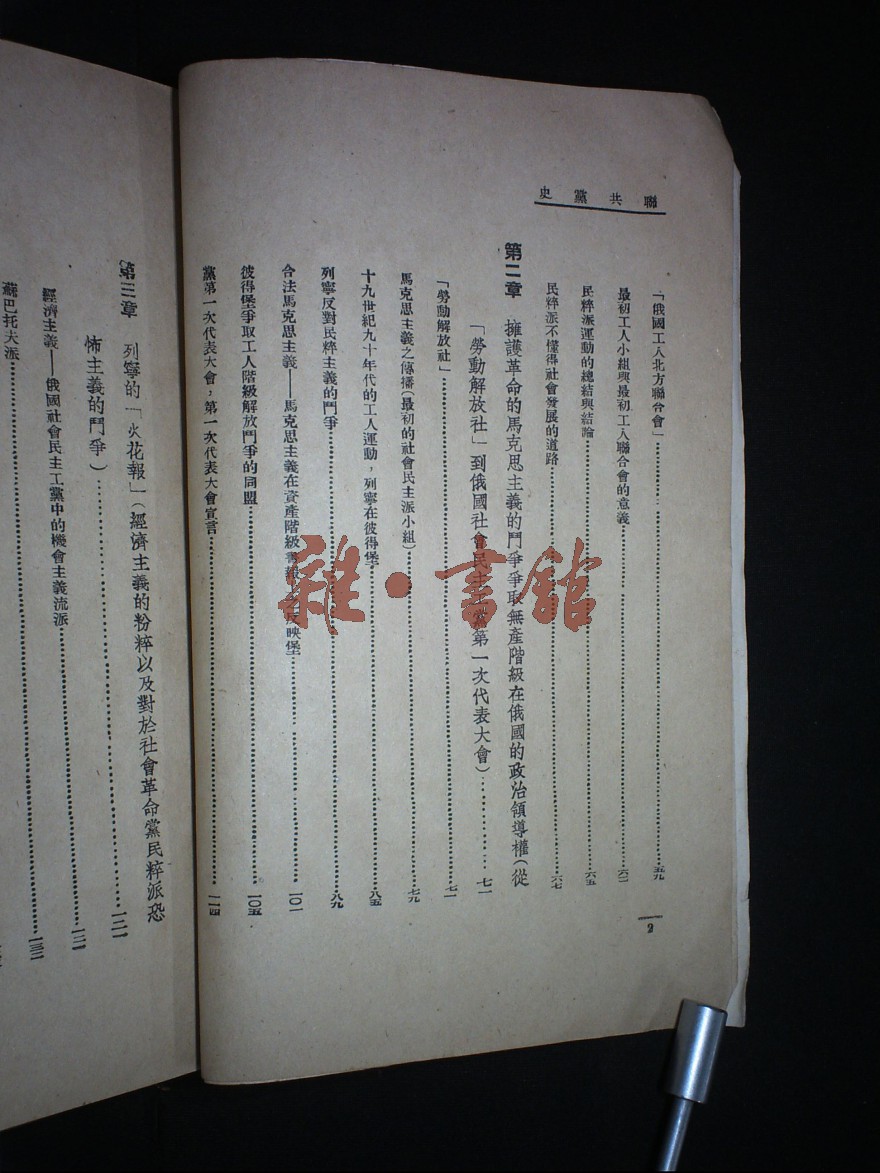 聯共黨史
「俄國工人北方聯合會」……五九
最初工人小組與最初工人聯合會的意義……六二
民粹派運動的總結與結論……六五
民粹派不懂得社會發展的道路……六七
第二章 擁護革命的馬克思主義的鬥爭爭取無產階級在俄國的政治領導權(從
「勞動解放社」到俄國社會民主工黨第一次代表大會)……七一
「勞動解放社」……七一
馬克思主義之傳播(最初的社會民主派小組)……七九
十九世紀九十年代的工人運動，列寧在彼得堡……八五
列寧反對民粹主義的鬥爭……八九
合法馬克思主義——馬克思主義在資產階級書報上之反映堡……一〇一
彼得堡爭取工人階級解放鬥爭的同盟……一〇五
黨第一次代表大會，第一次代表大會宣言……一一四
2
第三章 列寧的「火花報」(經濟主義的粉粹以及對於社會革命黨民粹派恐
怖主義的鬥爭)……一二一
經濟主義——俄國社會民主工黨中的機會主義流派……一二一
蘇巴托夫派……一三三
雜·書館